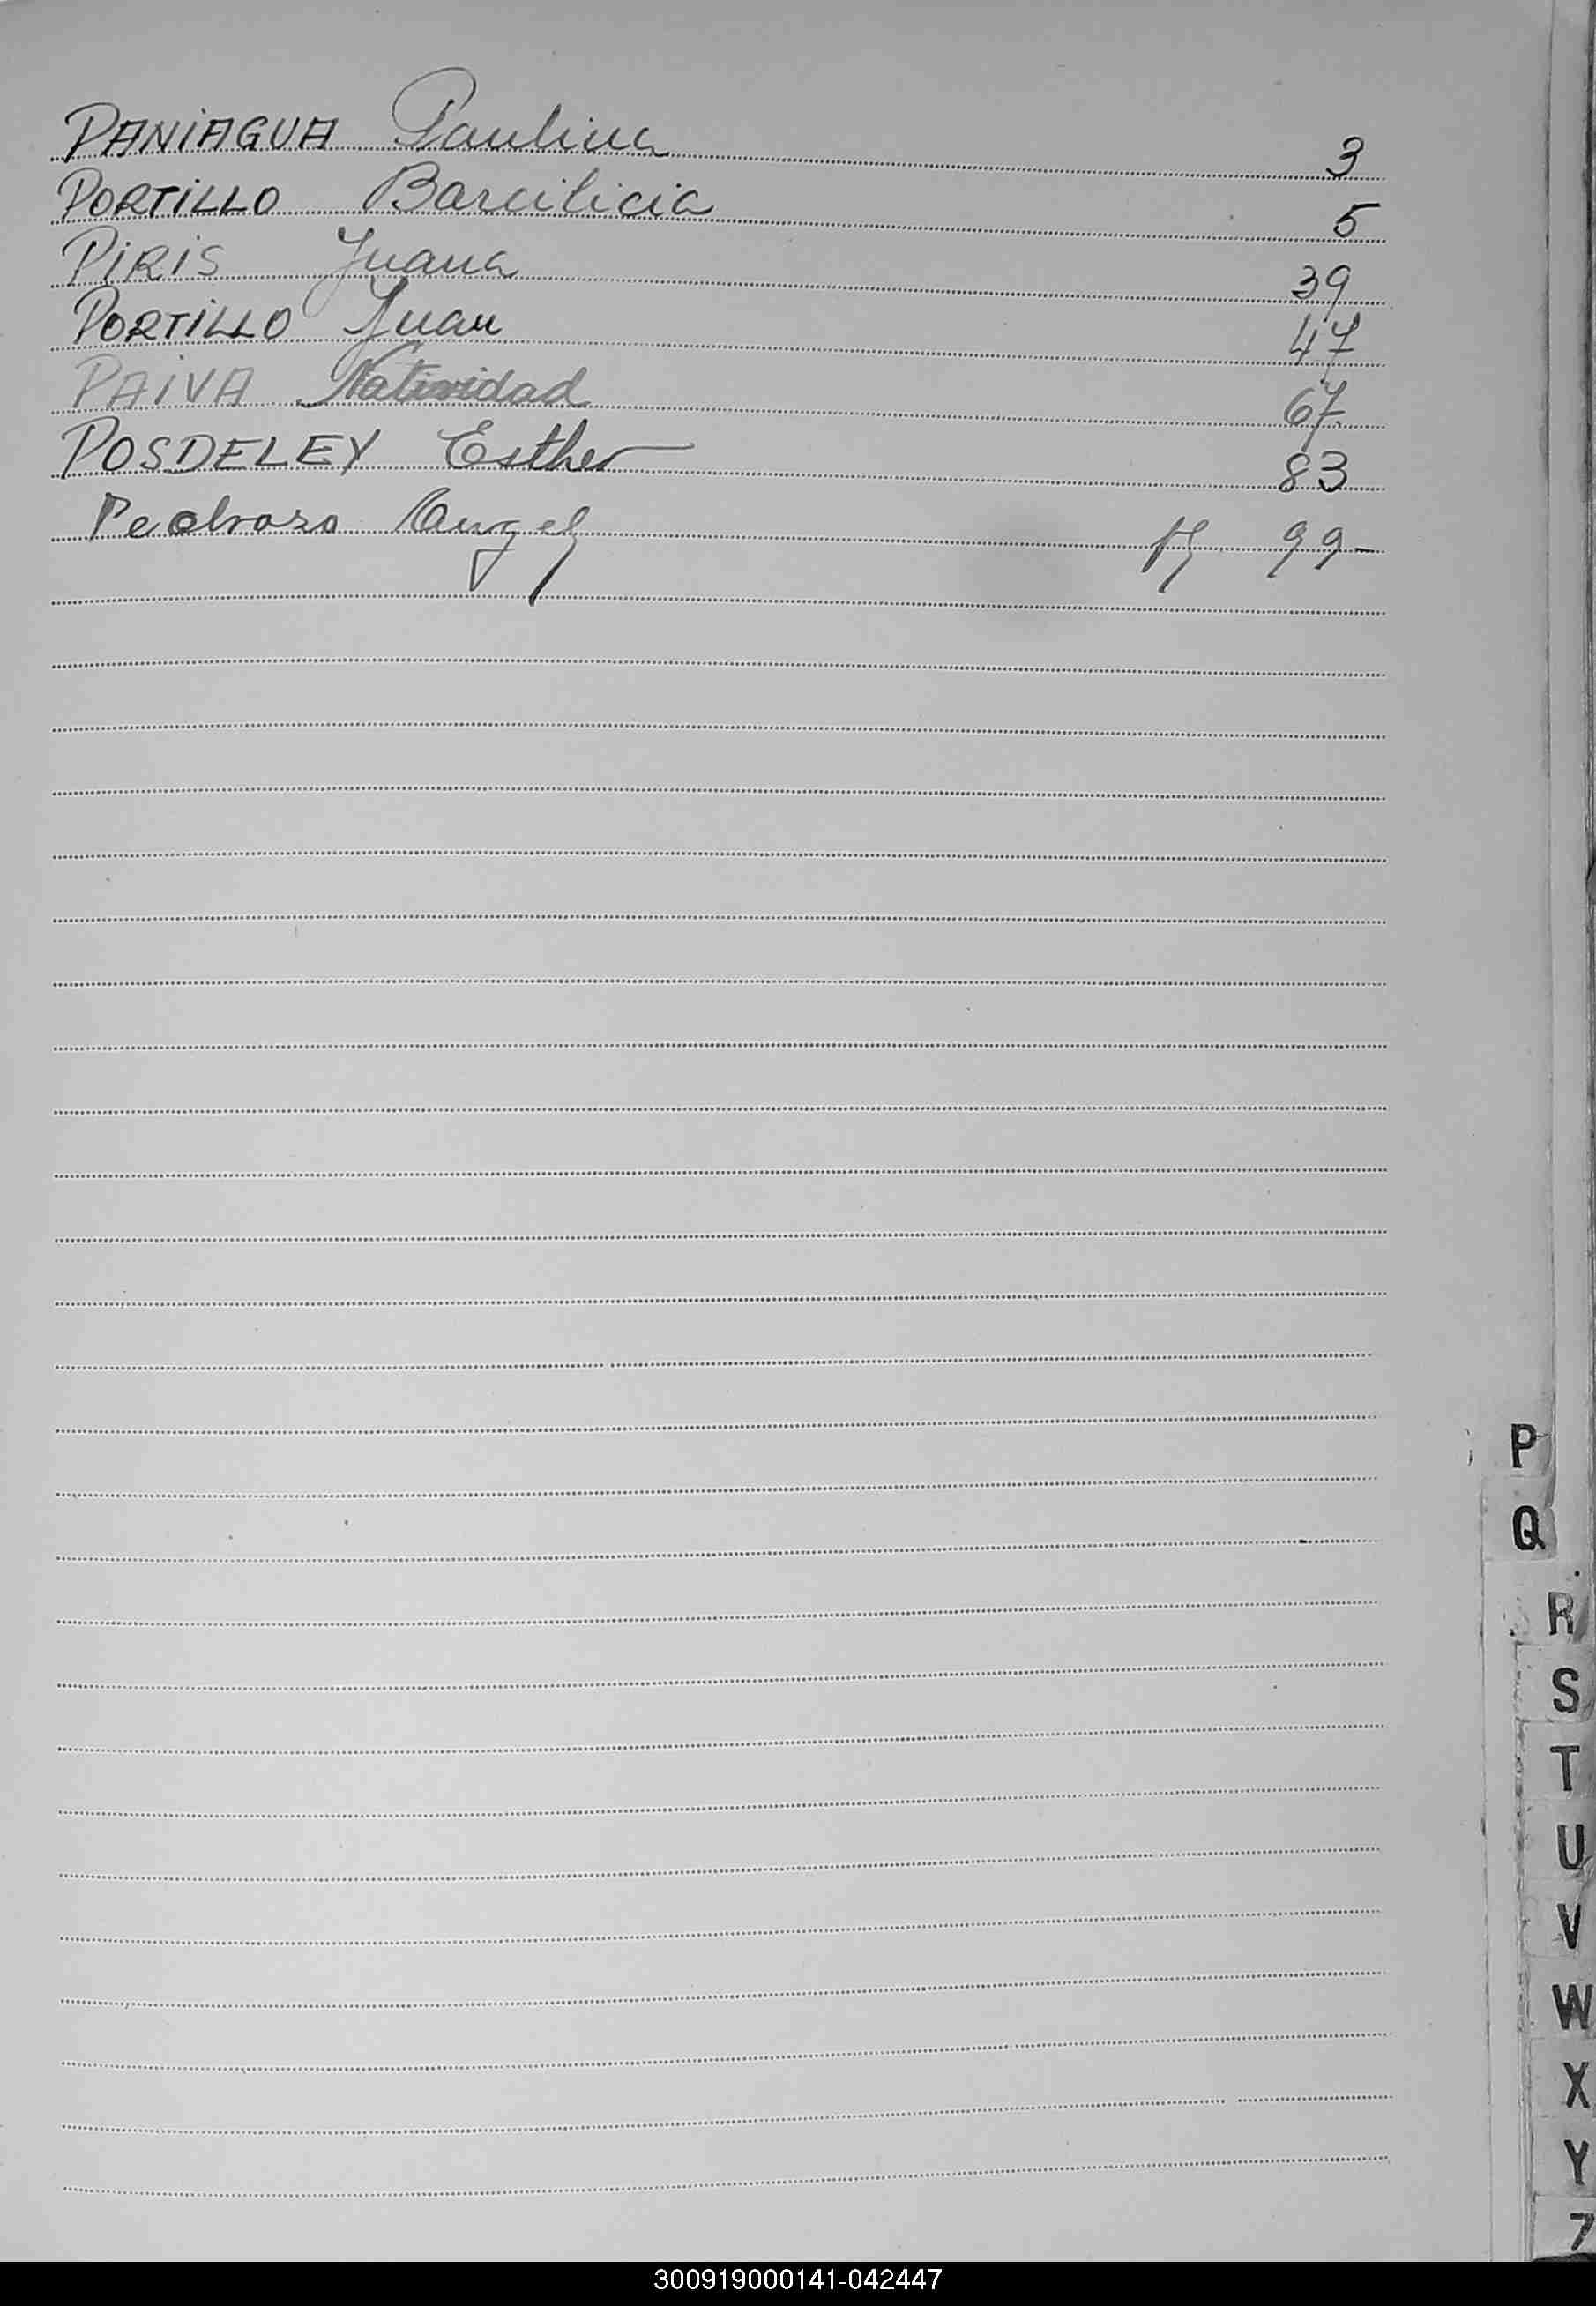 PANIAGUA Paulina 3
PORTILLO Barcilicia 5
PIRIS Juana 39
PORTILLO Juan 47
PAIVA Natividad 67
POSDELEY Esther 83
Pedrozo Angel 99-
P
Q
R
S
T
U
V
W
X
Y
Z
300919000141-042447